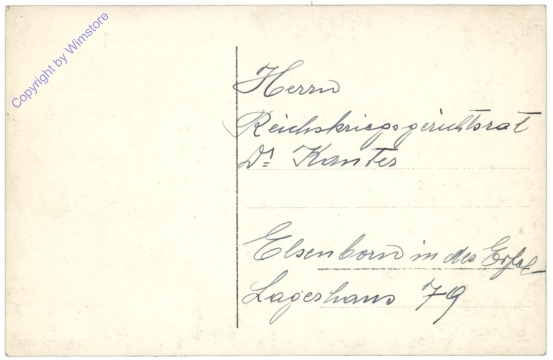 Copyright by Wimstore
Herrn
Reichskriegsgerichtsrat
Dr. Kanter
Elsenborn in der Eifel
Lagerhaus 79